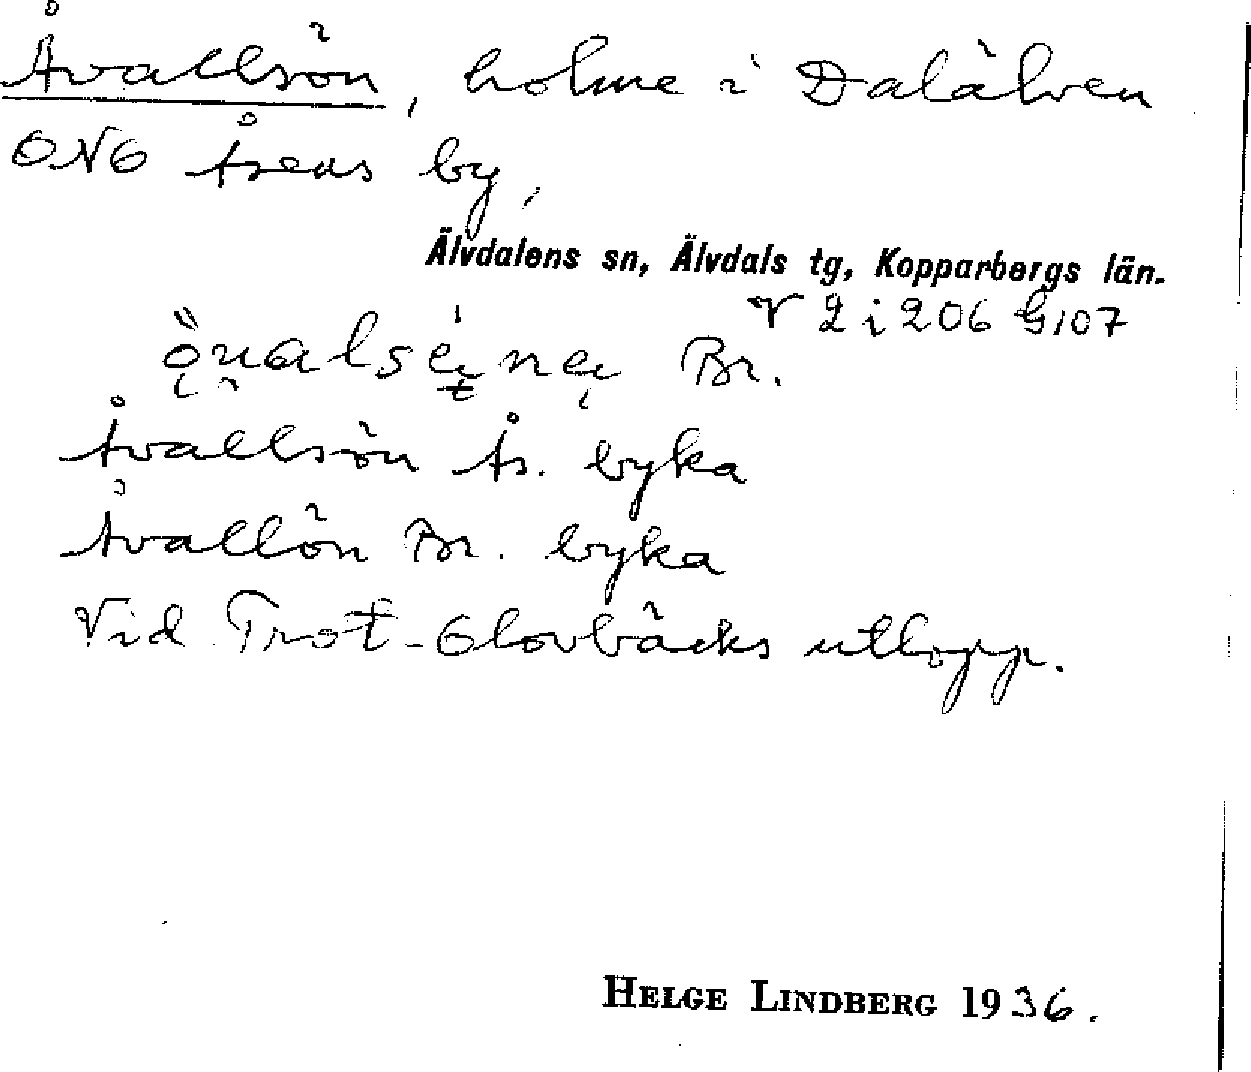 Åvallsön, holme i Dalälven
ONO Åsens by,
Älvdalens sn, Älvdals tg, Kopparbergs län.
V 2 i 206 G 107
Br.
Åvallsön Ås. byka
Åvallön Br. byka
Vid Trot-Olovbäcks utlopp.
HELGE LINDBERG 1936.